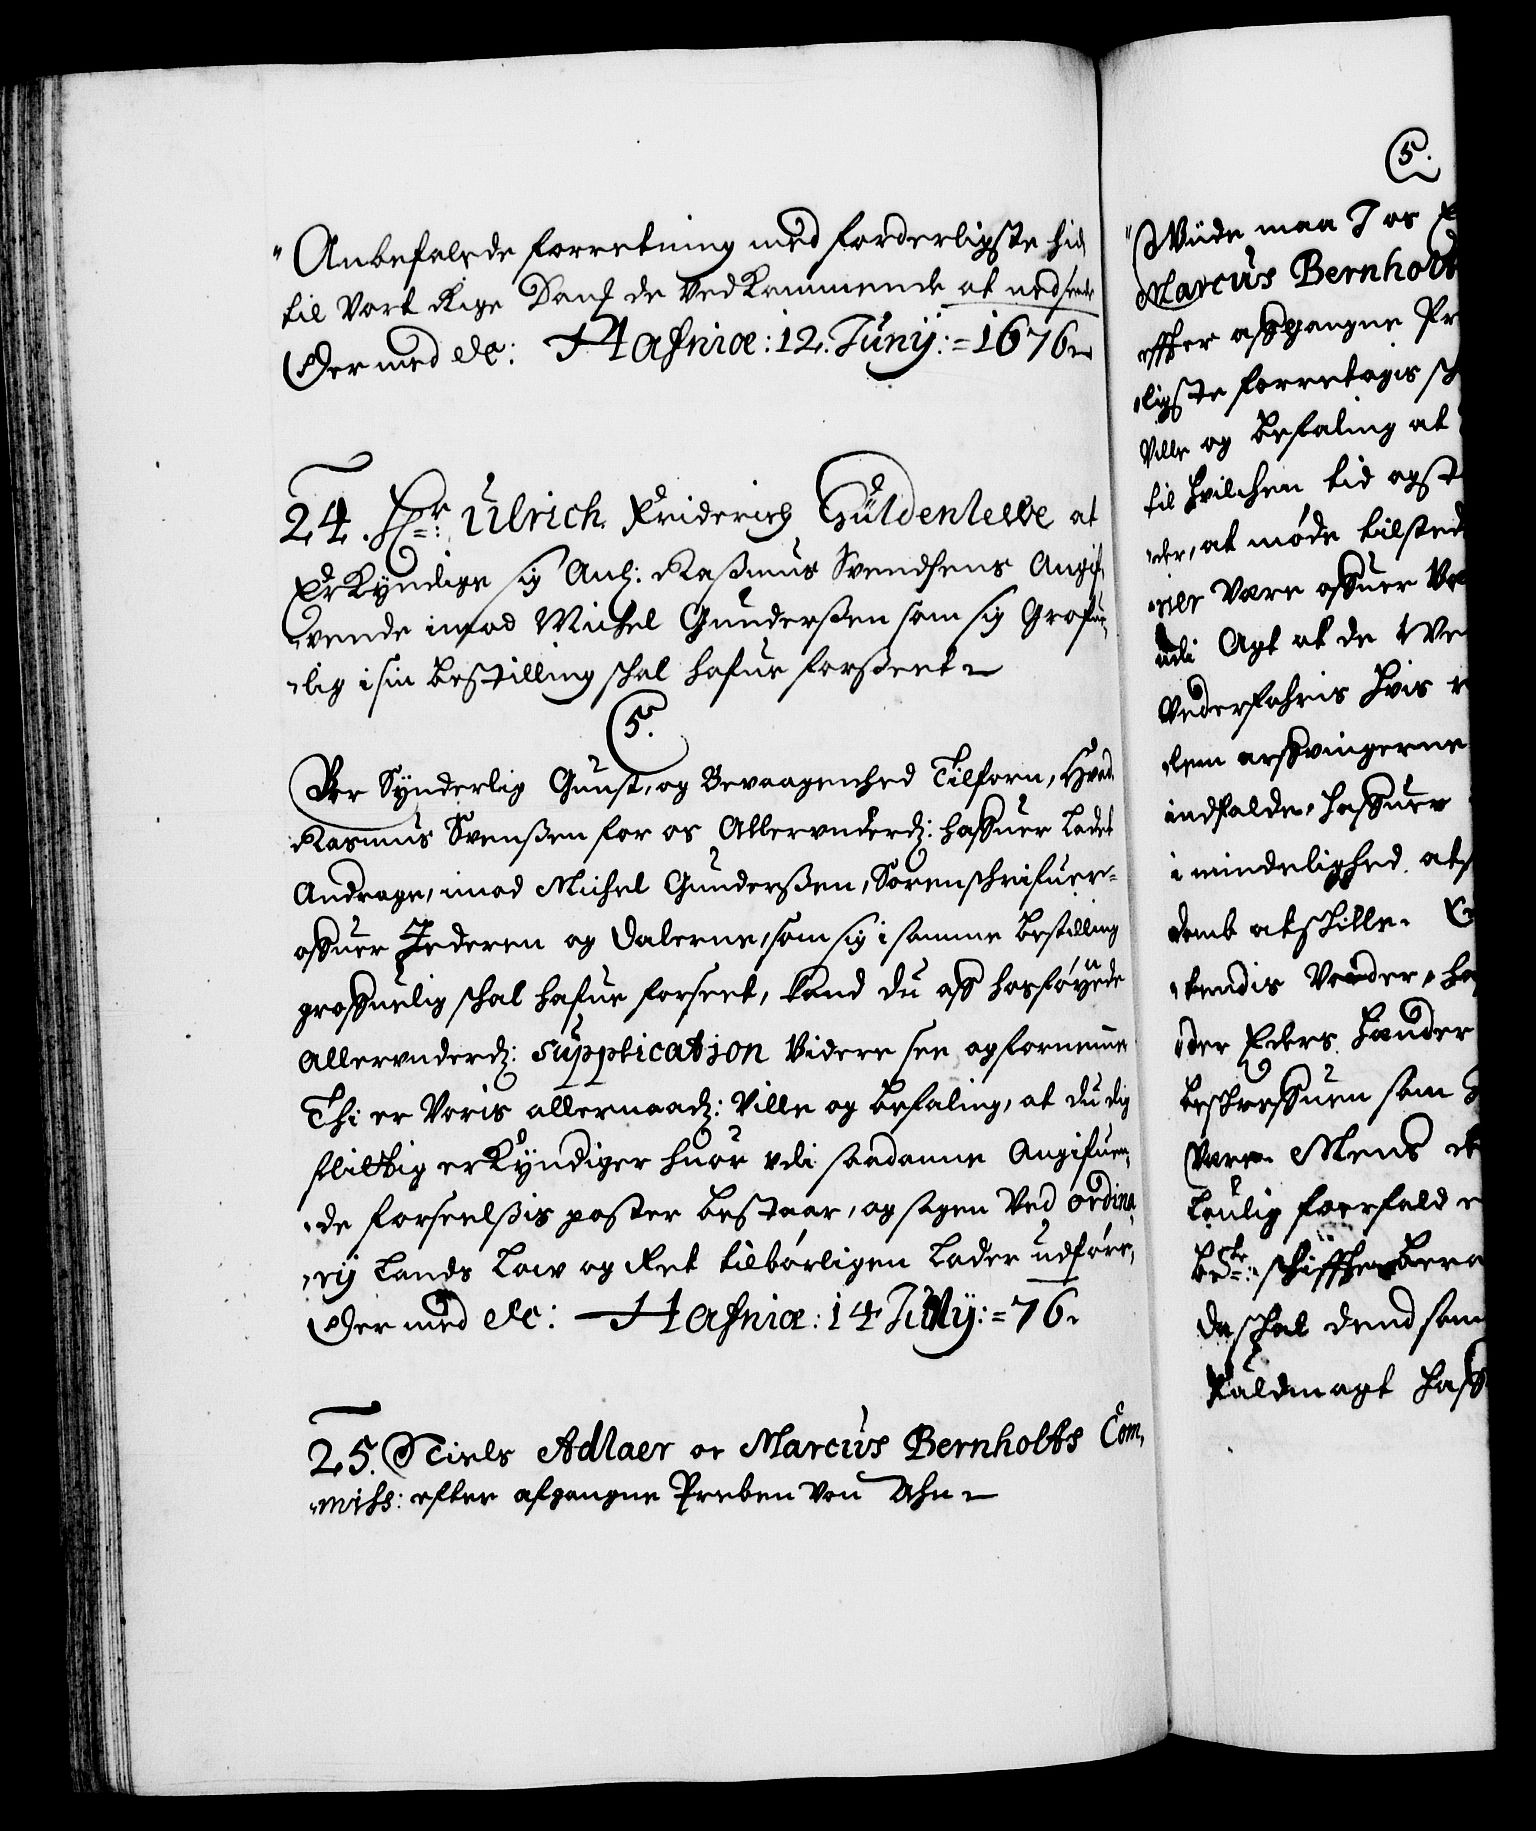 Anbefalede forretning med forderligste hid
til Vort Rige Danf de Vedkommende at nedsende
Der med Etc: Hafniæ: 12. Junij: = 1676
24. Hr: Ulrich Friderich Güldenlewe at
Erkyndige sig Anl: Rasmus Svendsens Angif,
,vende imod Michel Gundersen som sig Grofue,
,lig i sin bestilling schal hafue forseet
5.
Vor Synderlig Gunst, og Bevaagenhed Tilforn, Hvad
Rasmus Svensen for os Allerunderd: haffuer Ladet
Andrage, imod Michel Gundersen, Sorenschrifuer
offuer Jederen og Dalerne, som sig i samme bestilling
groffuelig schal hafue forseet, kand du aff hosföyede
Allerunderd: Supplication Videre see og fornemme
Thi er Voris allernaad: Ville og befaling, at du dig
flittig erkyndiger huor vdi saadanne Angifuen,
,de forseelsis poster bestaar, og sagen Ved ordina,
,rij Lands Low og Ret tilbörligen Lader udföre,
Der med Etc: Hafniæ: 14 Julij: = 76.
25. Niels Adlaer oc Marcus Bernholts Com,
,miss: efter afgangne Preben von Ahn
5.
Wiide maa I os
Marcus Bernholt
effter affgangne Pr
,ligste forretagis sch
Ville og befaling at
til huilchen tid og st
,der, at möde tilsted
,rile Være offuer Ve
udi Agt at de tve
Vederfahris huis
,dem arffvingerne
indfalde, haffuer
i mindelighed at
domb at schille.
,kendis Under, ha
der Eders Hænder
beschreffuen som
Være. Mens
Loulig forfald
beste: schiffte
da schal dend som
Fuldmagt haff